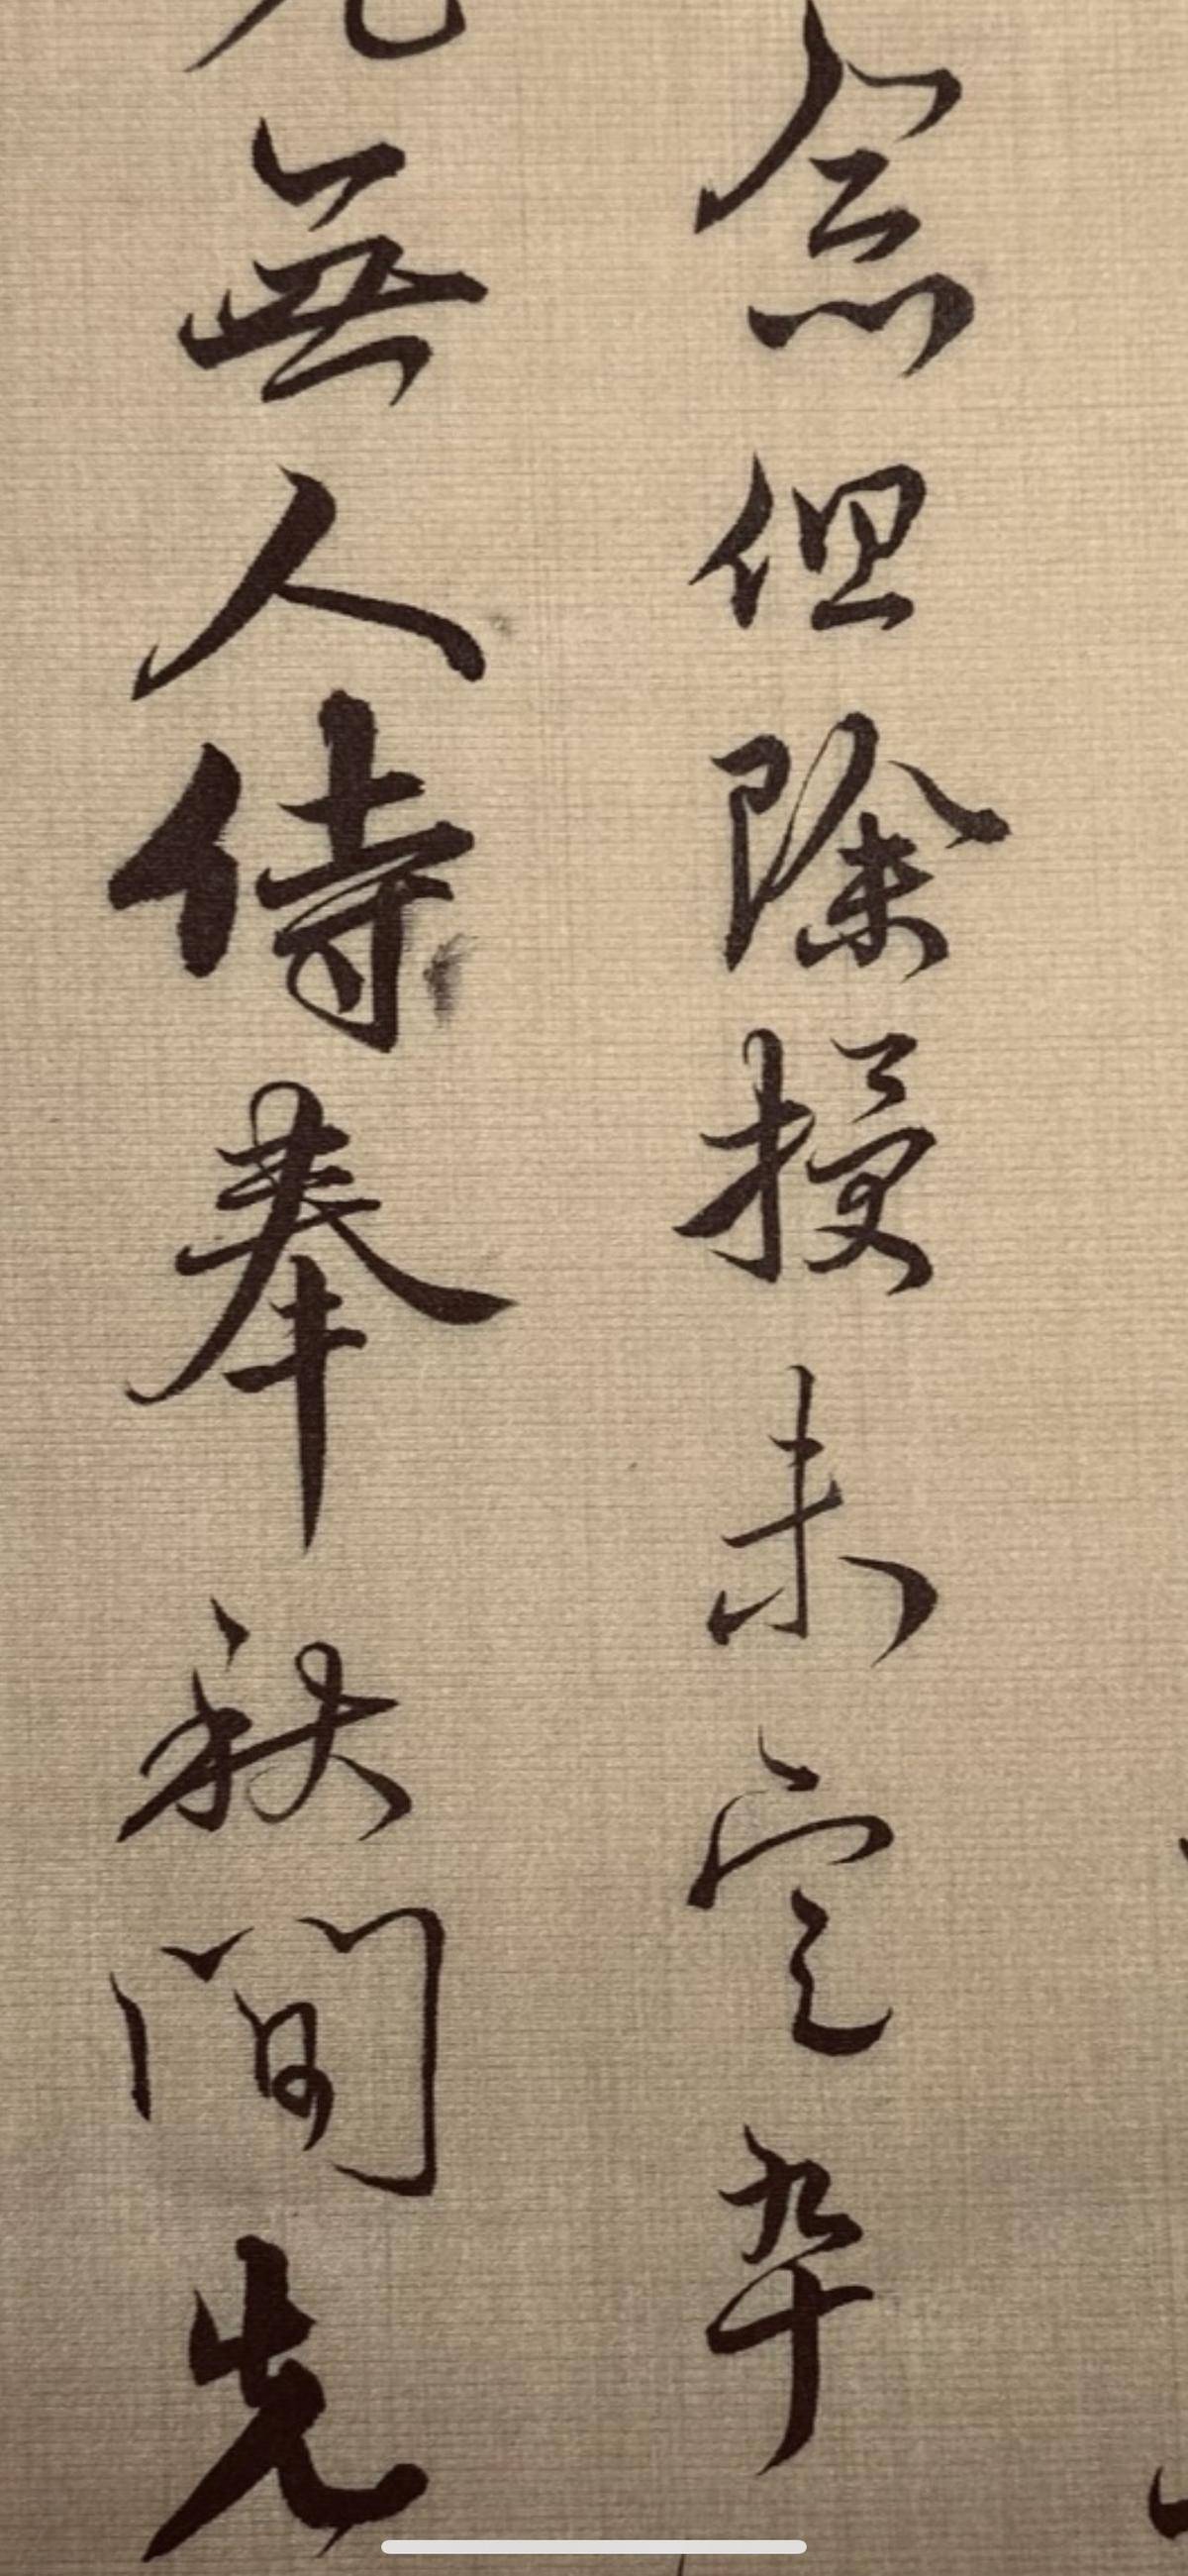 念但除授未定卒
無人侍奉秋間先